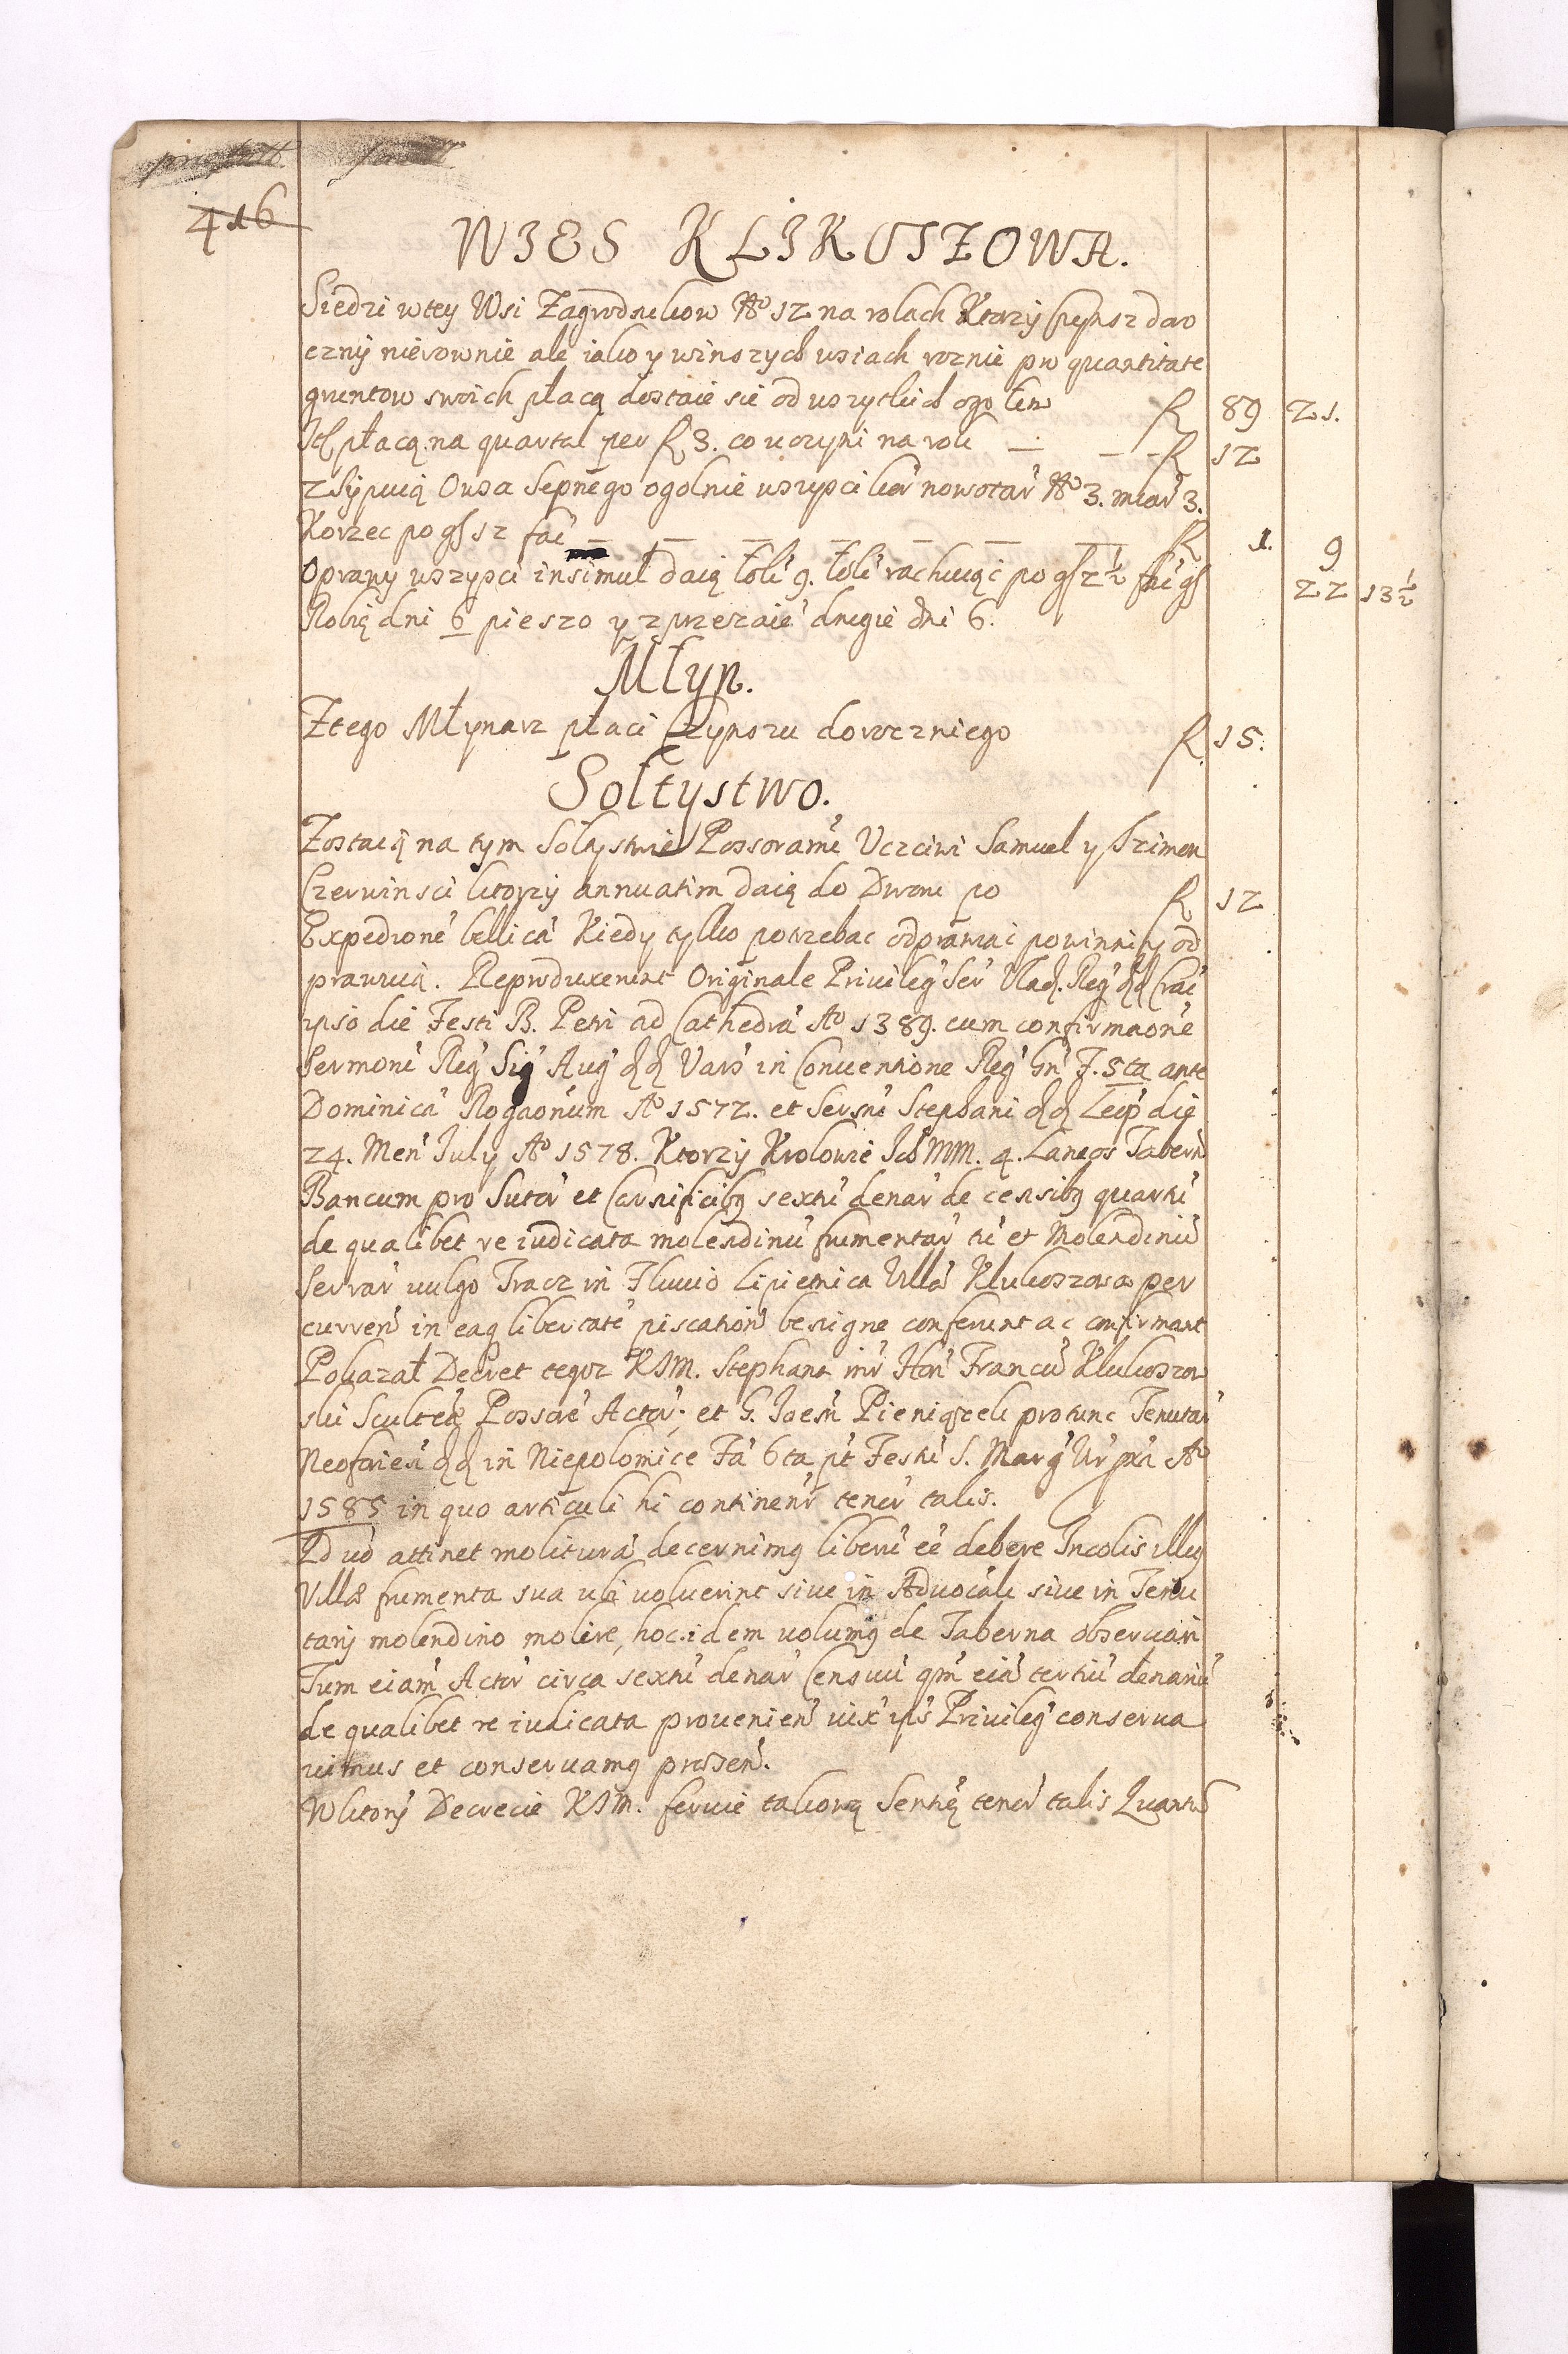 416
WIES KLIKUSZOWA.
Siedzi w tey Wsi Zagrodnikow No 12 na rolach Ktorzÿ Czynsz doro
cznÿ nierownie ale iako y w inszych wsiach roznie pro quantitate
gruntow swoich płacą dostaie sie od wszytkich ogołem fl 89 21.
Itẽ płacą na quartał per fl 3. co uczyni na rok — — - fl 12
Zsÿpuią Owsa Sepnego ogolnie wszysci kor nowotar No 3. miar 3.
Korzec po gs 12 fac — — — — — — fl 1. 9
Oprawy wszysci insimul daią łoki 9. łoki rachuiąc po gs 2½ fac gs 22 13½
Robią dni 6 pieszo y zprzezaie drugie dni 6.
Młyn.
Z tego Młynarz płaci Czynszu doroczniego fl 15.
Soltystwo.
Zostaią na tym Soltystwie Possorami Uczciwi Samuel y Szimon
Czerwinsci ktorzÿ annuatim daią do Dworu po fl 12
Expedione bellica Kiedy tylko potrzeba odprawiac powinni y od
prawuią. Reproduxerunt Originale Privileg Ser Vlad. Reg dd Crac
ipso die Festi B. Petri ad Cathedra Ao 1389. cum confirmaone
Sermoni Reg Sig Aug dd Vars in Conventione Reg Gn F. 5ta ante
Dominica Rogaonum Ao 1572. et Sersni Stephani dd Leop die
24. Men July Ao 1578. Ktorzÿ Krolowie Ich MM. 4. Laneos Tabern
Bancum pro Sutor et Carnificibq sextu denar de censibq quartu
de qualibet re iudicata molendinu frumentar tu et Molendinu
Serrar vulgo Tracz in Fluvio Lipienica Villa Klukoszowa per
curren in eaq libertate piscation benigne conferunt ac confirmant
Pokazał Decret tegoz KIM. Stephana intr Hon Francu Klukoszow
ski Scultet Possore Actor; et G. Joem Pieniązek protunc Tenutar
Neoforien dd in Niepolomice Fa 6ta pt Festu S. Marg Vir Ao
1585 in quo articuli hi continenr tenor talis.
Qd vo attinet molitura decernimq liberu ee debere Incolis illiq
Villæ frumenta sua ubi voluerint sive in Advocali sive in Tenu
tarÿ molendino molere, hoc idem volumq de Taberna observari
Tum eiam Actor circa sextu denar Censuu qm eia tertiu denariu
de qualibet re iudicata provenien iux ips Privileg conserva
uimus et conservamq præsen.
W ktorÿ Decrecie KIM. feruie takową Sentią tenor talis Quantu